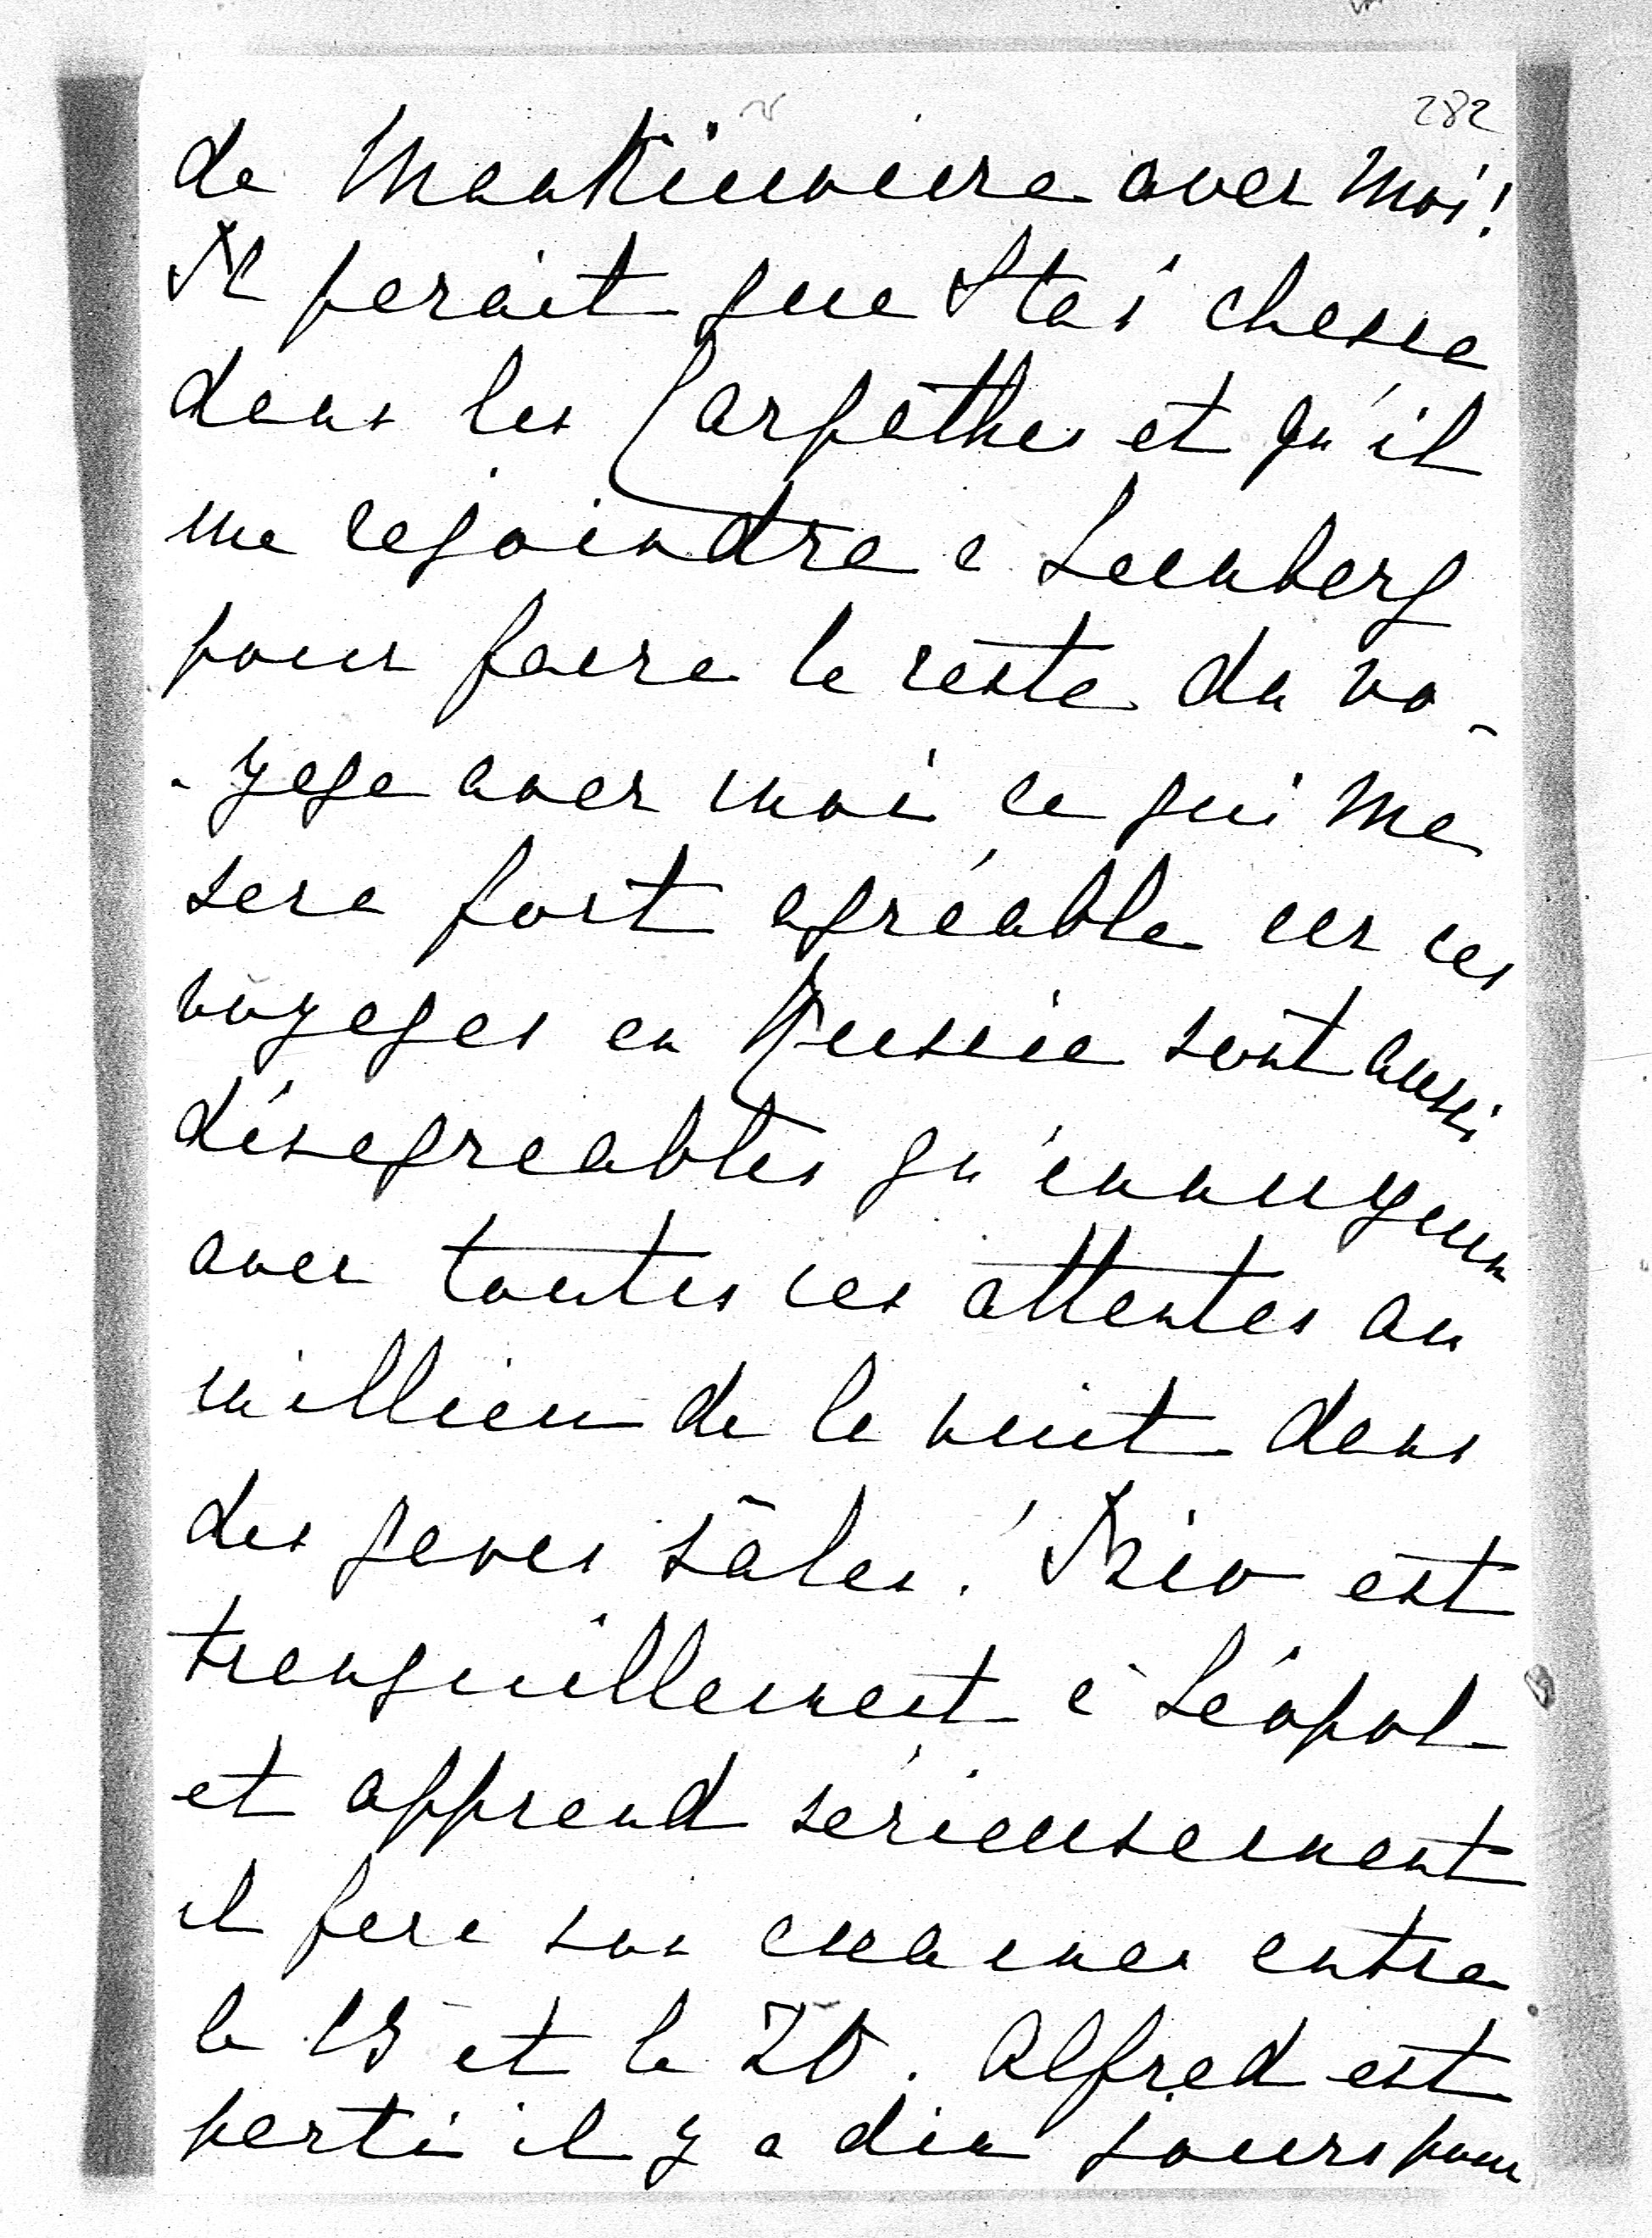 282
de avec moi!
Il parait que Stas chasse
dans les Carpathes et qu'il
me rejoindra a Lemberg
pour faire le reste du vo-
-yage avec moi ce qui me
sera fort agréable car ces
voyages en Russie sont aussi
désagreables qu'ennuyeux
avec toutes ces attentes au
millieu de la nuit dans
des gares sâles! Izio est
tranquillement à Léopol
et apprend sérieusement
il fera son examen entre
le 15 et le 20. Alfred est
parti il y a dix jours pour